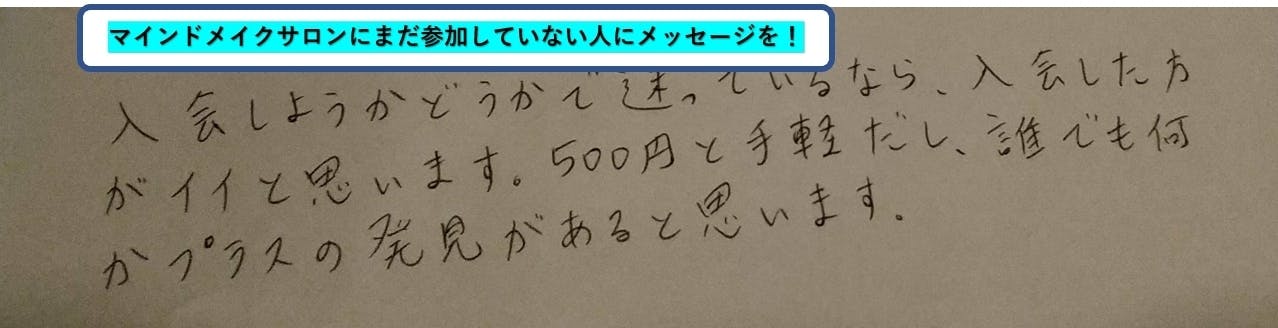 マインドメイクサロンにまだ参加していない人にメッセージを！
入会しようかどうかで迷っているなら、入会した方
がイイと思います。500円と手軽だし、誰でも何
かプラスの発見があると思います。